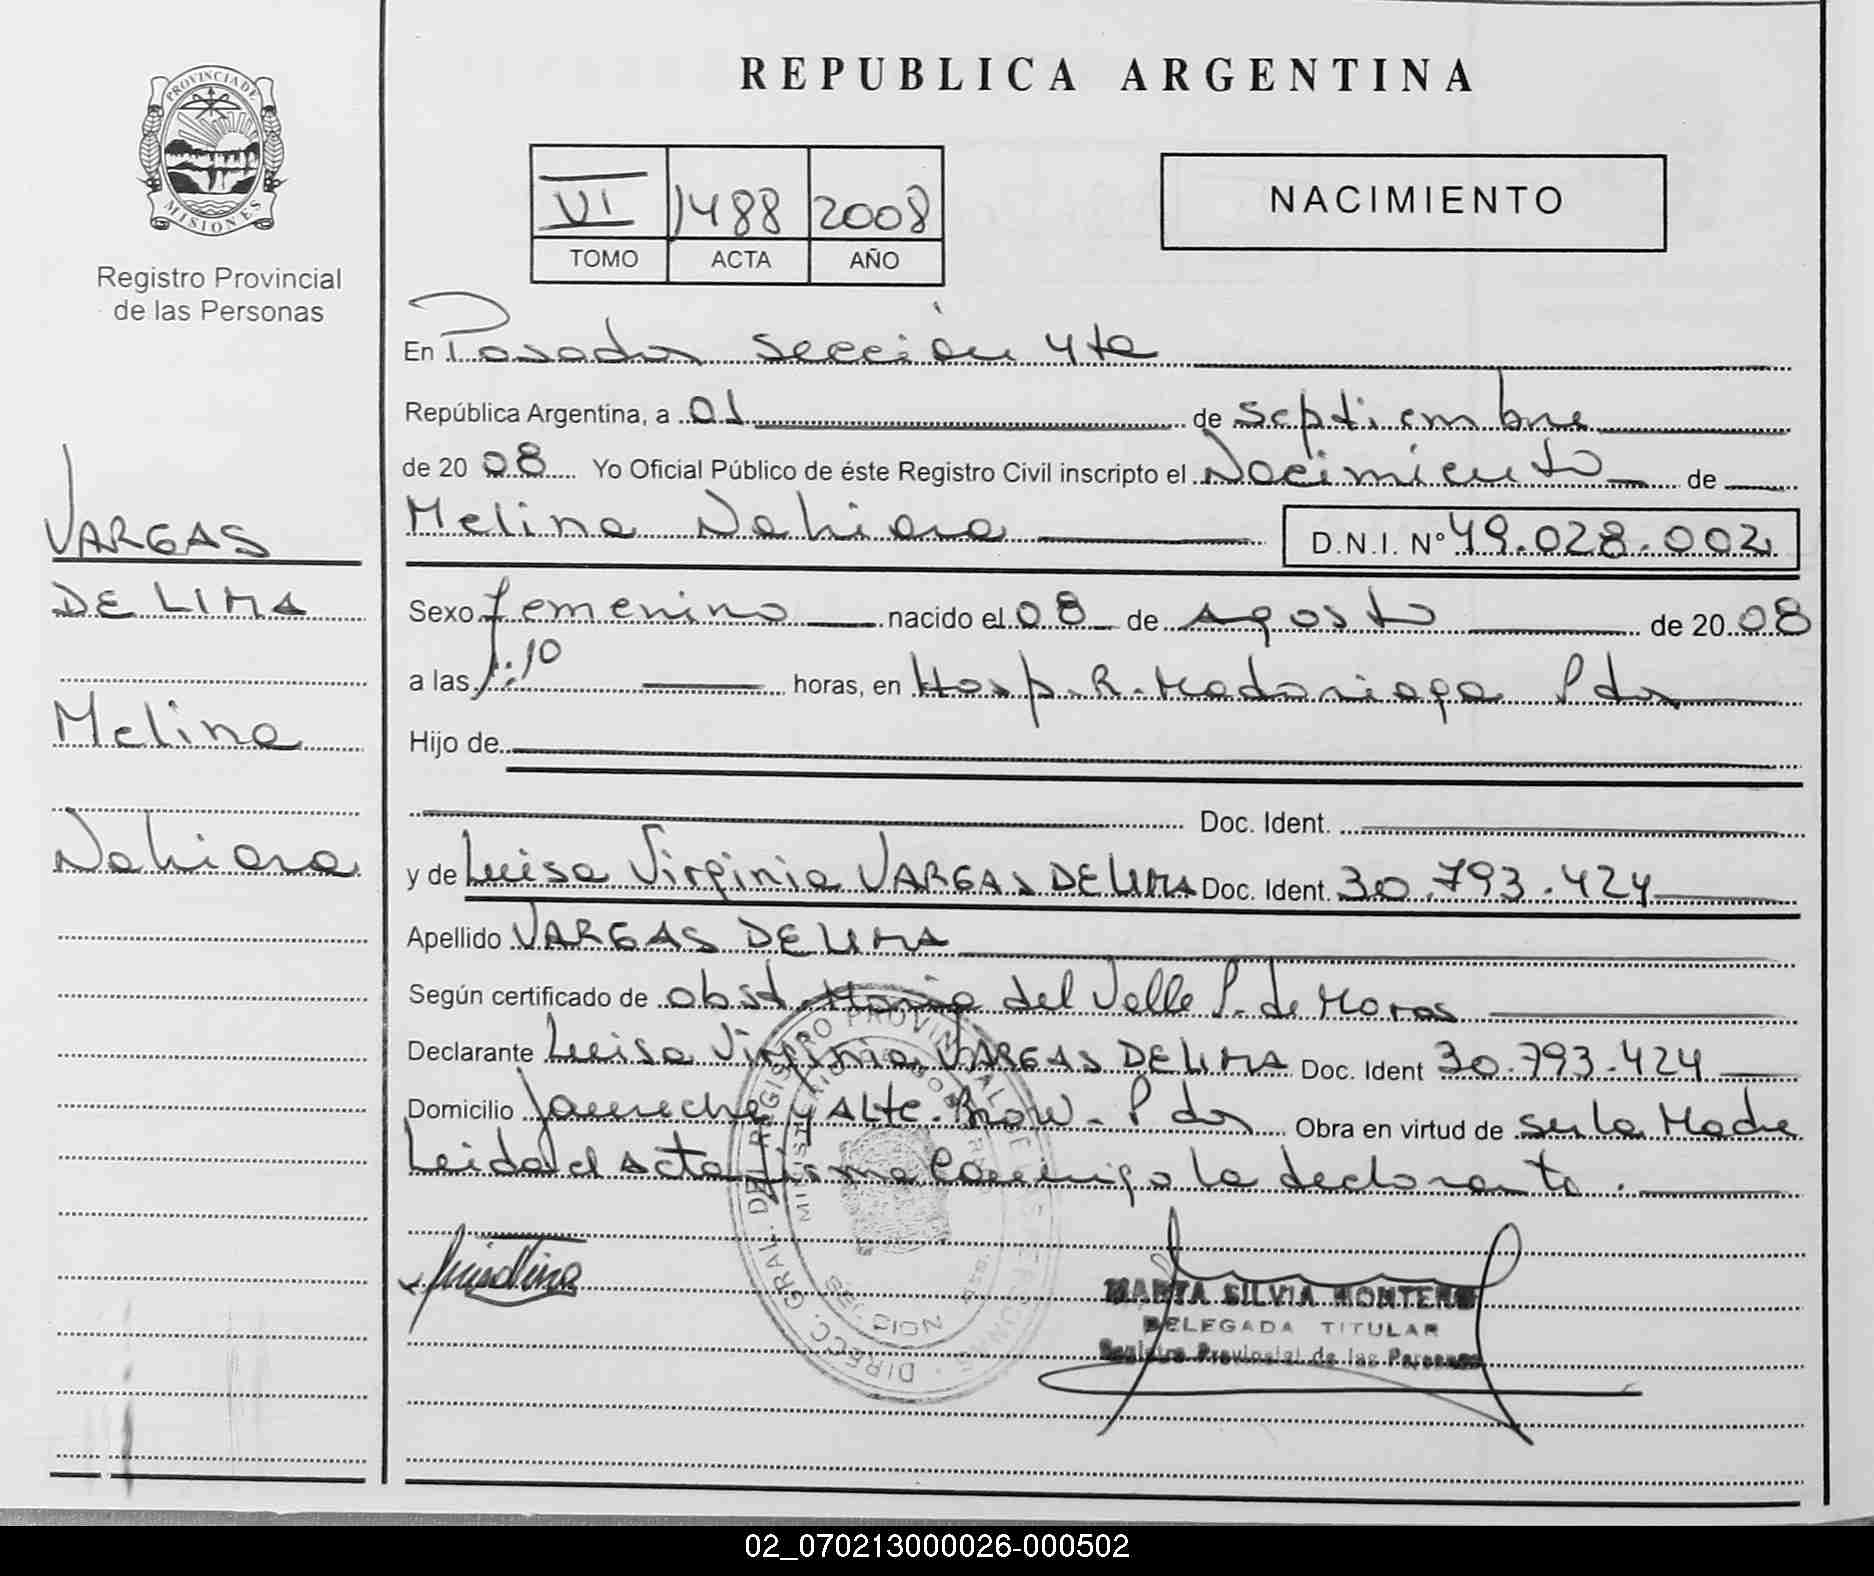 PROVINCIA DE
MISIONES
Registro Provincial
de las Personas
VARGAS
DE LIMA
Melina
Nahiara
REPUBLICA ARGENTINA
VI 1488 2008
TOMO ACTA AÑO
NACIMIENTO
En Posadas sección 4ta
República Argentina, a 01 de septiembre
de 2008 Yo Oficial Público de éste Registro Civil inscripto el Nacimiento de
Melina Nahiara D.N.I. Nº 49.028.002
Sexo femenino nacido el 08 de Agosto de 2008
a las 1:10 horas, en Hosp. R. Madariaga Pdas
Hijo de
Doc. Ident.
y de Luisa Virginia VARGAS DE LIMA Doc. Ident. 30.793.424
Apellido VARGAS DE LIMA
Según certificado de obst. María del Valle P. de Moras
Declarante Luisa Virginia VARGAS DE LIMA Doc. Ident 30.793.424
Domicilio Jaureche y Alte. Brow. Pdas Obra en virtud de ser la Madre
Leida el acta firma conmigo la declarante.
MARTA SILVIA MONTERO
DELEGADA TITULAR
Registro Provincial de las Personas
DIRECC. GRAL. DE REGISTRO PROVINCIAL DE PERSONAS
02_070213000026-000502